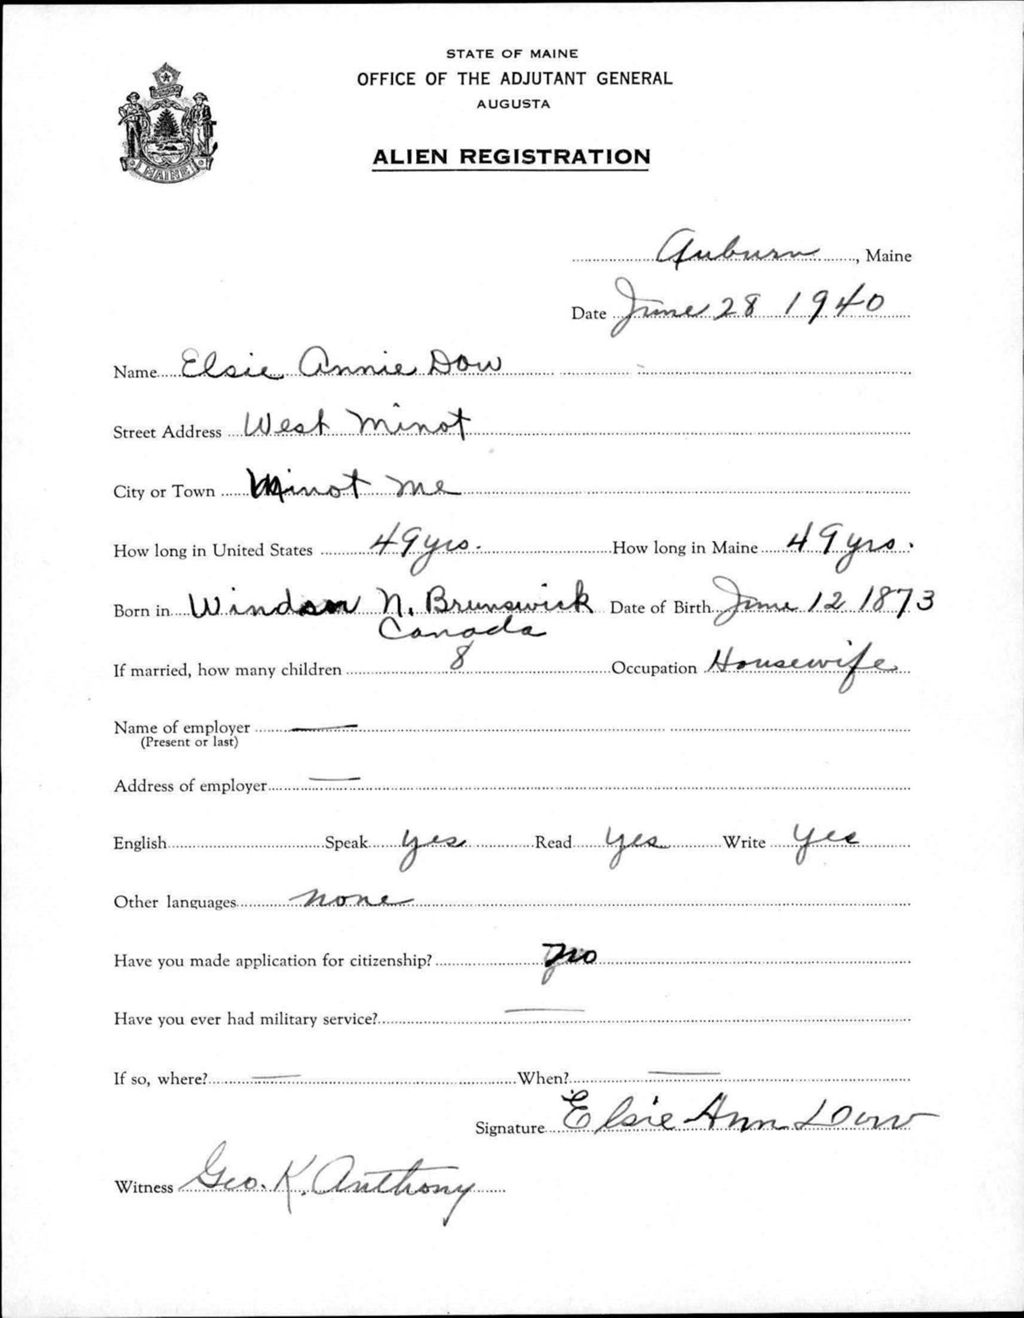 STATE OF MAINE
OFFICE OF THE ADJUTANT GENERAL
AUGUSTA
ALIEN REGISTRATION
MAINE
Auburn, Maine
Date June 28 1940
Name Elsie Annie Dow
Street Address West Minot
City or Town Minot Me
How long in United States 49 yrs. How long in Maine 49 yrs.
Born in Windsor N. Brunswick Date of Birth June 12 1873
Canada
If married, how many children 8 Occupation Housewife
Name of employer —
(Present or last)
Address of employer —
English Speak yes Read yes Write yes
Other languages none
Have you made application for citizenship? no
Have you ever had military service? —
If so, where? — When? —
Signature Elsie Ann Dow
Witness Geo. K. Anthony